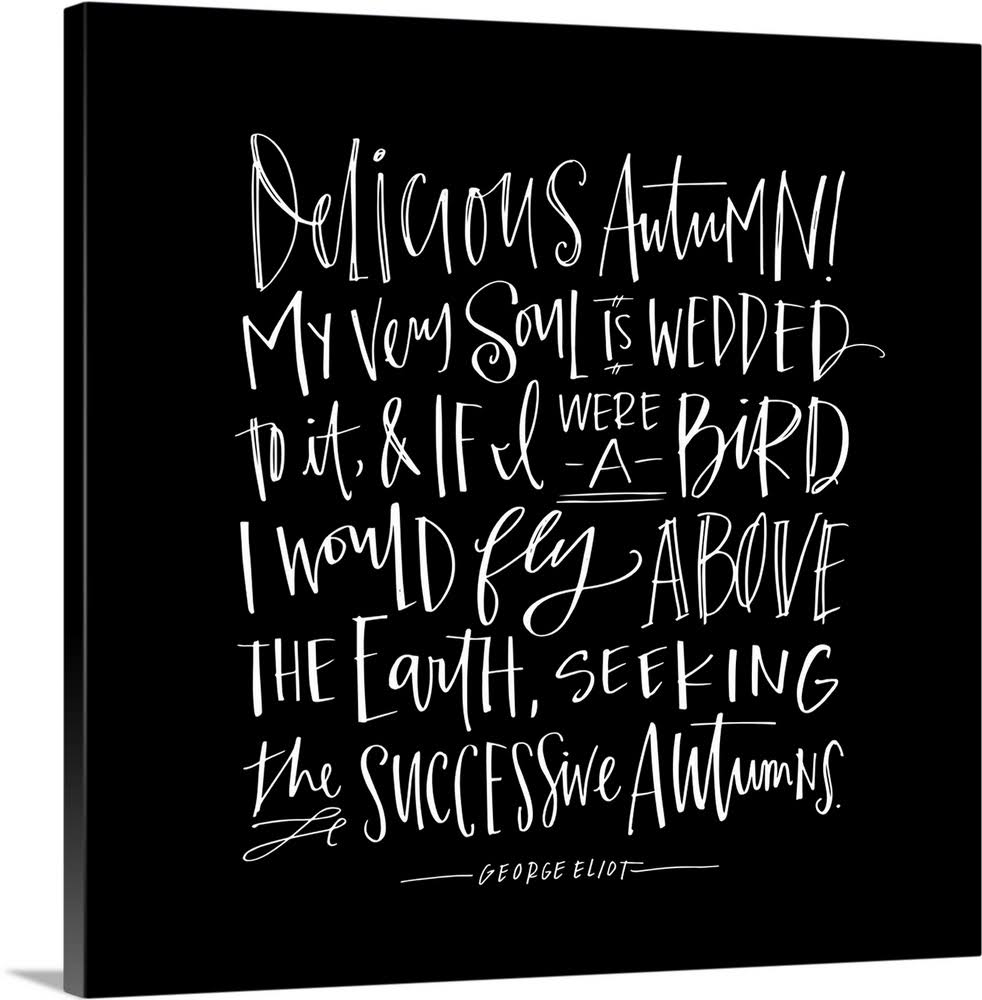 Delicious Autumn!
My very Soul is WEDDED
to it, & IF I WERE -A- BiRD
I would fly ABOVE
THE Earth, SEEKING
the SUCCESSive Autumns.
GEORGE ELIOT